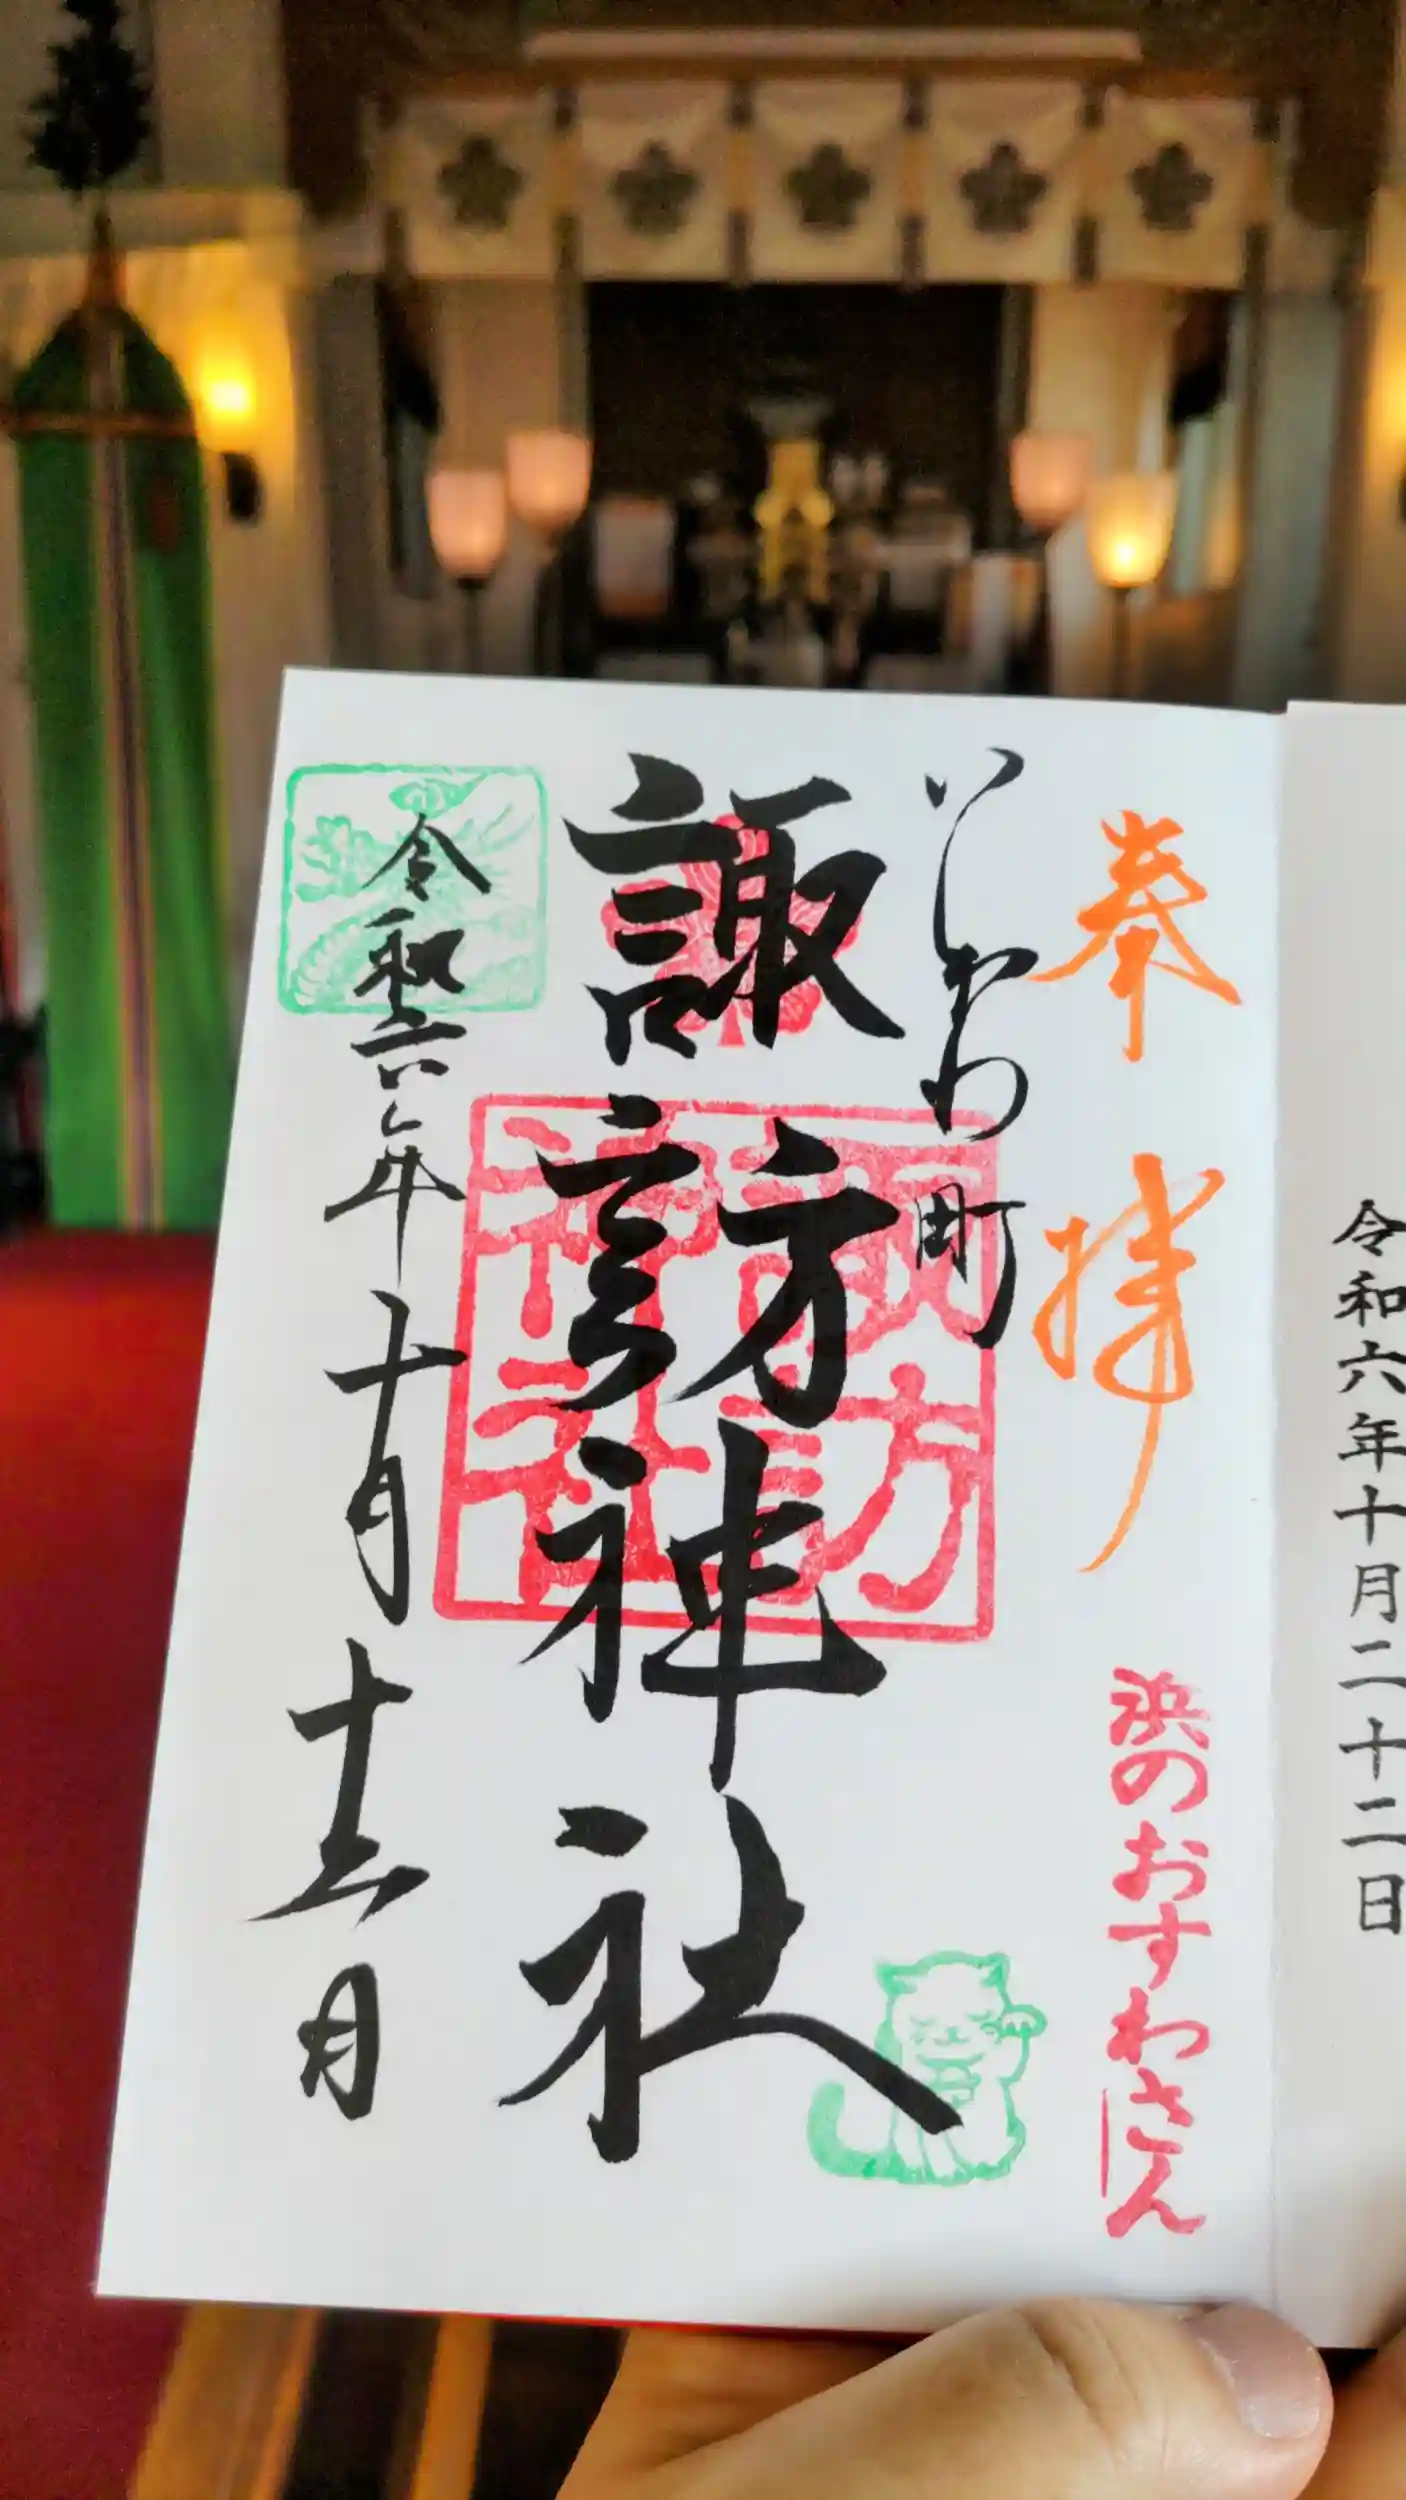 令和六年十月二十二日
奉拝
浜のおすわさん
いしかわ町
諏訪神社
諏訪神社
令和六年十月 日